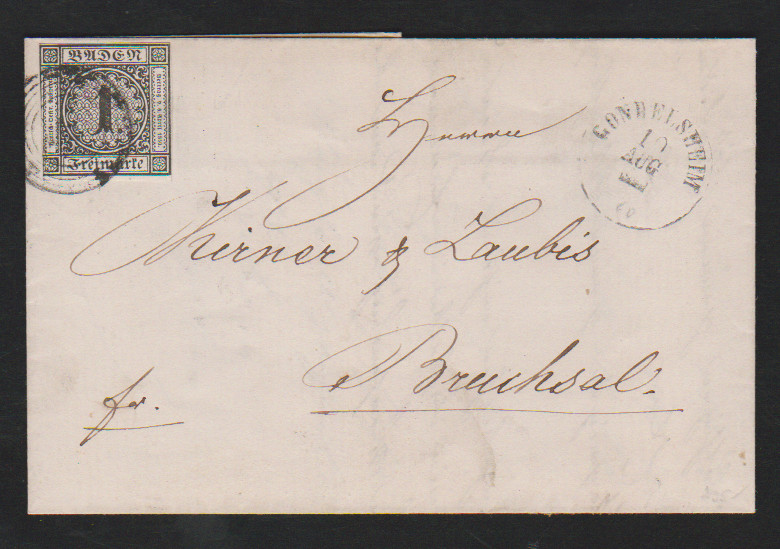 BADEN
1
Freimarke
GONDELSHEIM
10
AUG
Herren
Kirner & Laubis
Bruchsal.
fr.